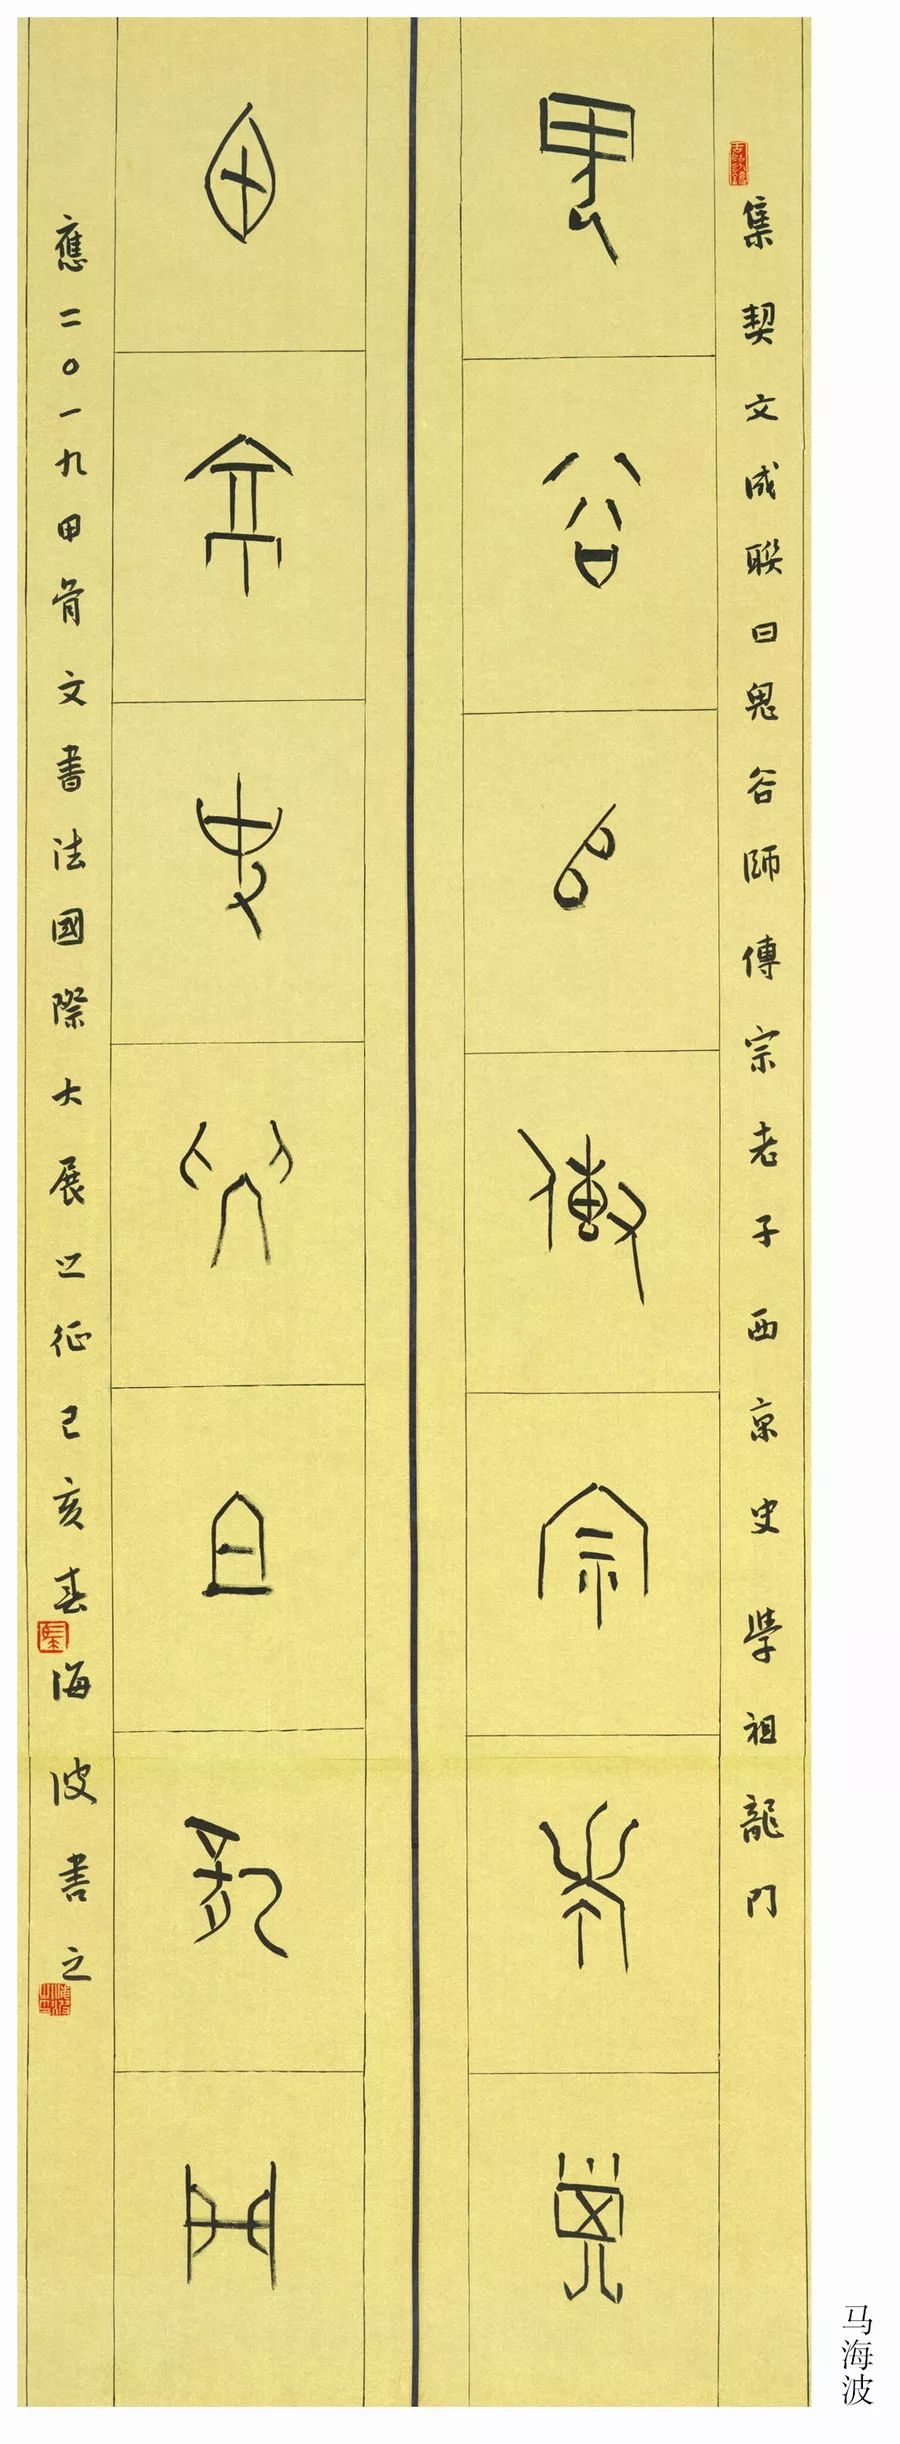 集契文成联曰鬼谷師傳宗老子西京史學祖龍門
鬼谷師傳宗老子
西京史學祖龍門
應二〇一九甲骨文書法國際大展之征己亥春海波書之
马海波